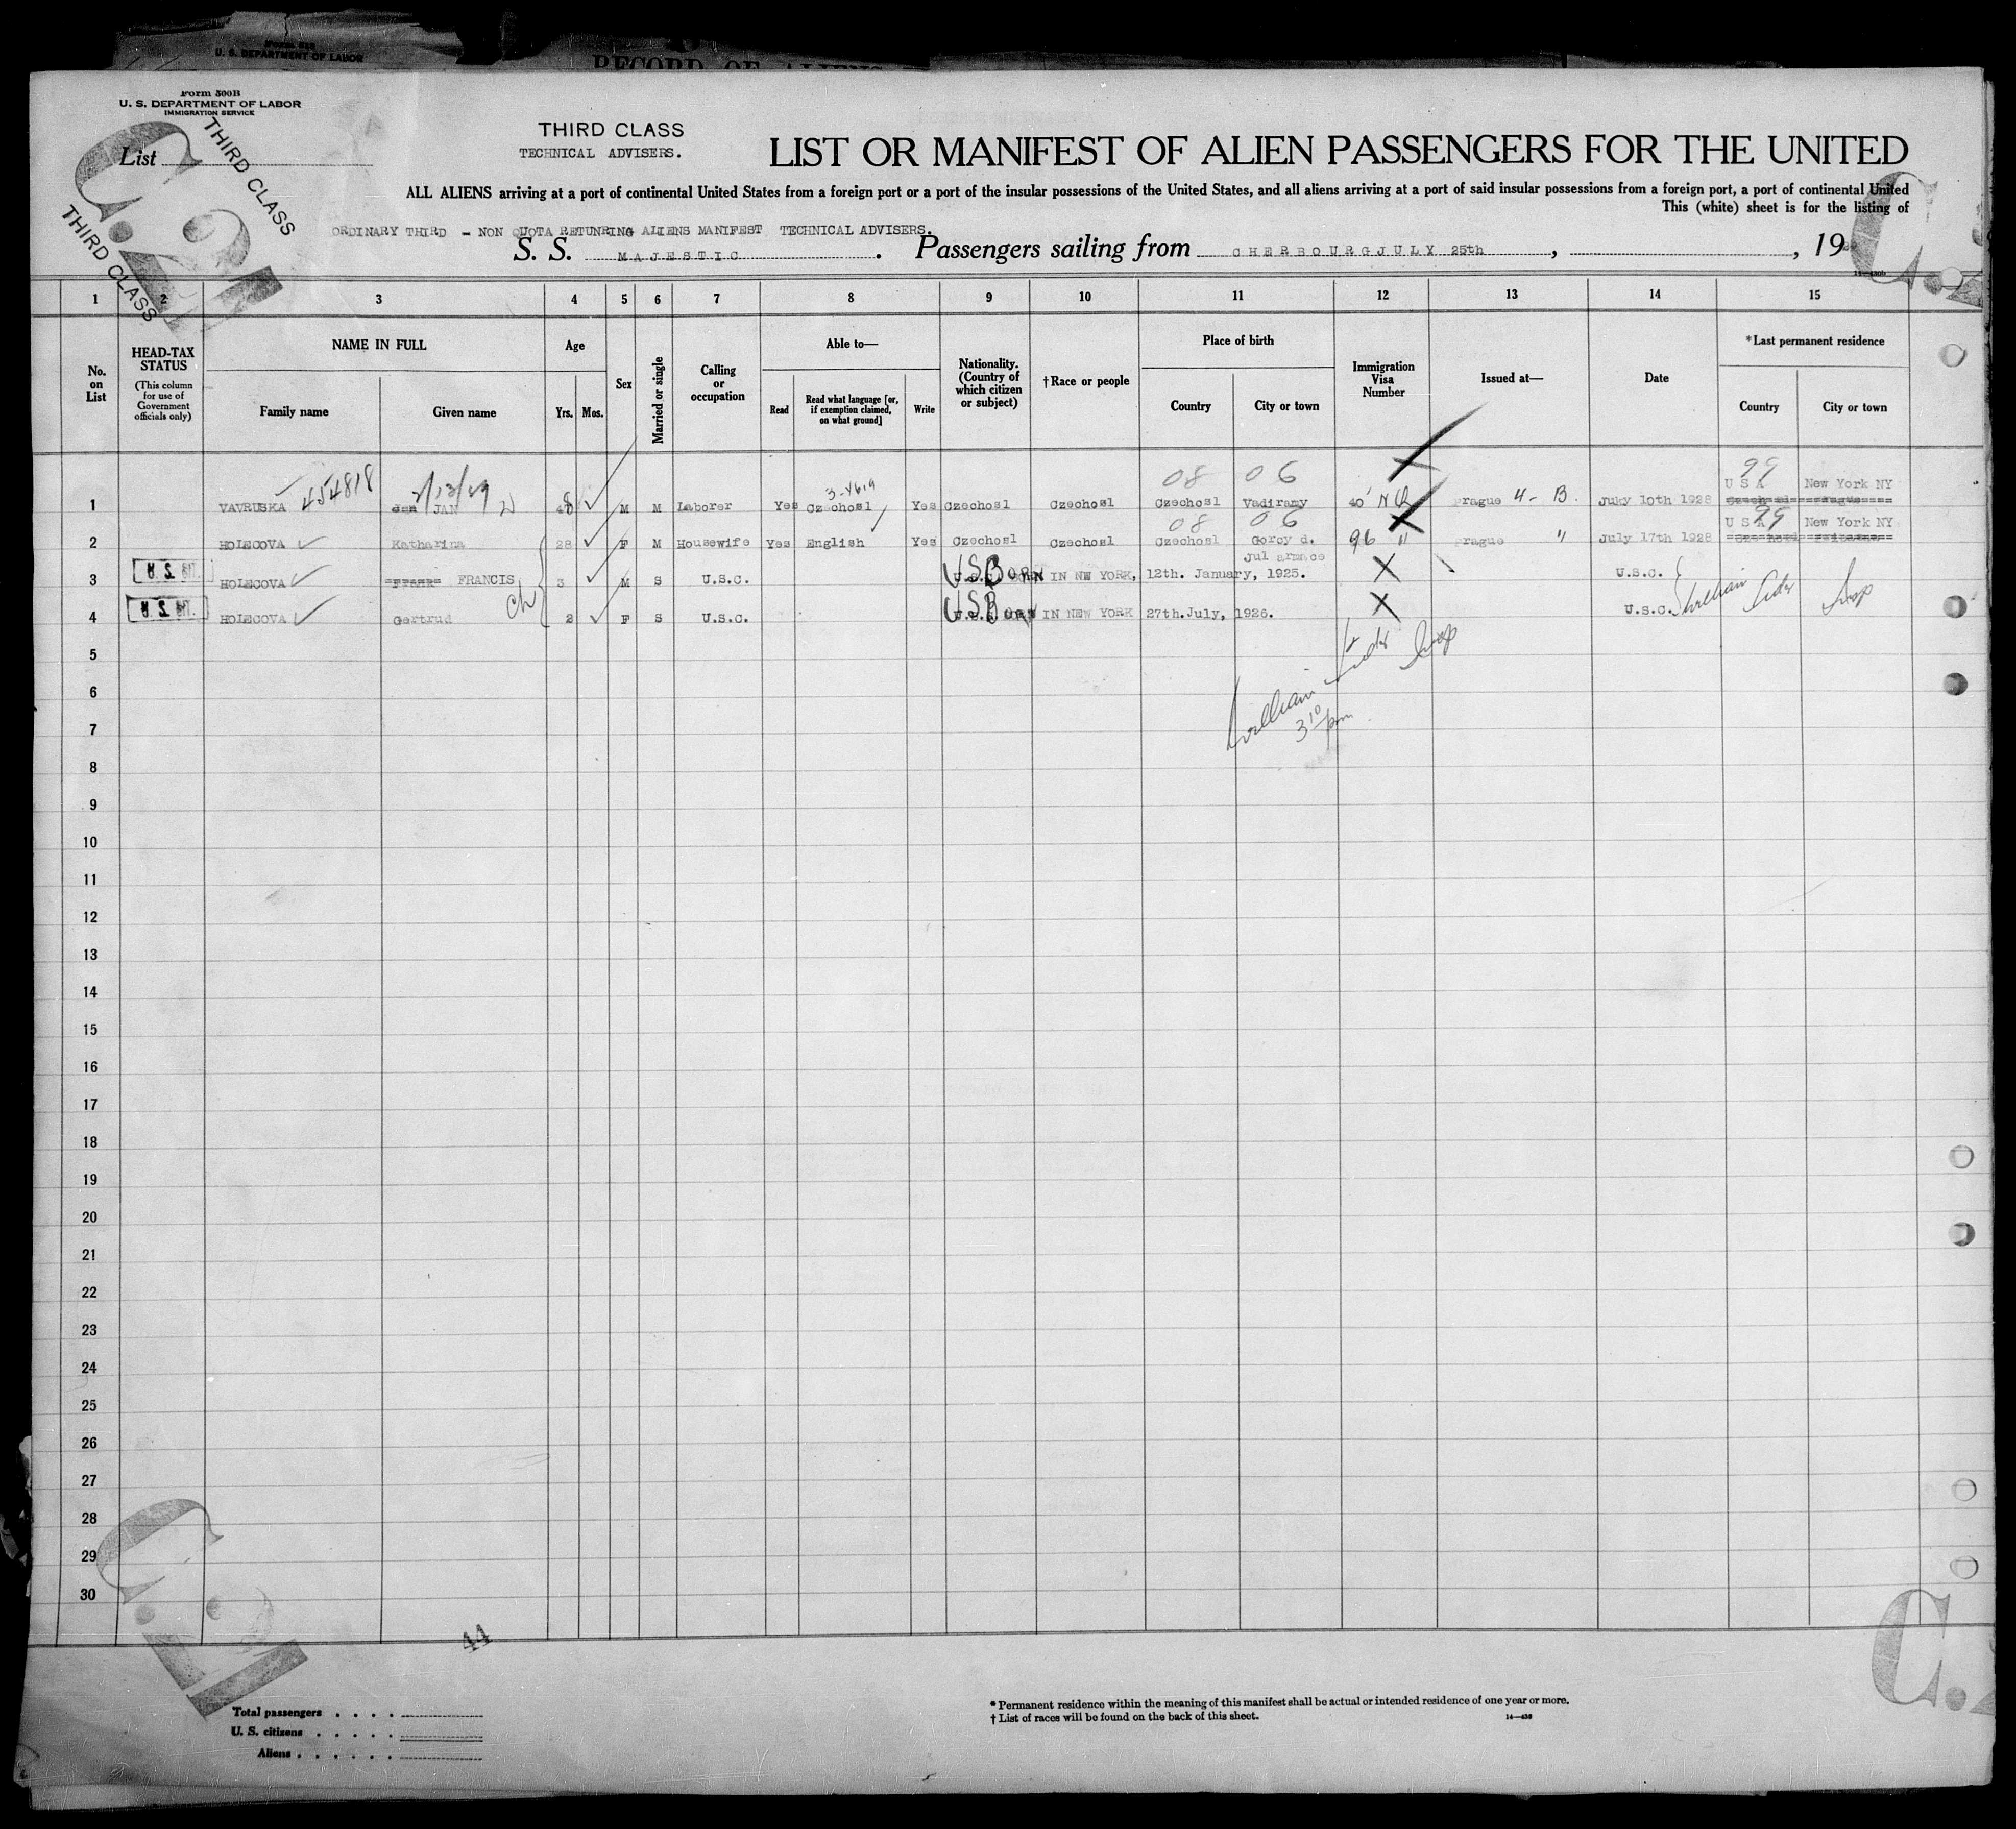 Form 500B
U. S. DEPARTMENT OF LABOR
U. S. DEPARTMENT OF LABOR
IMMIGRATION SERVICE
List
THIRD CLASS
THIRD CLASS
THIRD CLASS
TECHNICAL ADVISERS.
LIST OR MANIFEST OF ALIEN PASSENGERS FOR THE UNITED
ALL ALIENS arriving at a port of continental United States from a foreign port or a port of the insular possessions of the United States, and all aliens arriving at a port of said insular possessions from a foreign port, a port of continental United
This (white) sheet is for the listing of
ORDINARY THIRD - NON QUOTA RETUNRING ALIENS MANIFEST TECHNICAL ADVISERS.
S. S. MAJESTIC. Passengers sailing from CHERBOURG JULY 25th, , 19
1 2 3 4 5 6 7 8 9 10 11 12 13 14 15
No. on List
HEAD-TAX STATUS
(This column for use of Government officials only)
NAME IN FULL
Family name
Given name
Age
Yrs.
Mos.
Sex
Married or single
Calling or occupation
Able to—
Read
Read what language [or, if exemption claimed, on what ground]
Write
Nationality. (Country of which citizen or subject)
†Race or people
Place of birth
Country
City or town
Immigration Visa Number
Issued at—
Date
*Last permanent residence
Country
City or town
454818 2/13/29 3-4619 08 06 99
1 VAVRUSKA JAN 48 M M Laborer Yes Czechosl Yes Czechosl Czechosl Czechosl Vadiramy 40 NQ Prague 4-B. Juky 10th 1928 U S A New York NY
08 06 99
2 HOLECOVA Katharina 28 F M Housewife Yes English Yes Czechosl Czechosl Czechosl Gorcy d. Jul armace 96 " Prague " July 17th 1928 U S A New York NY
3 HOLECOVA FRANCIS 3 M S U.S.C. US Born IN NEW YORK, 12th. January, 1925. X U.S.C.
4 HOLECOVA Gertrud 2 F S U.S.C. US Born IN NEW YORK 27th.July, 1926. X U.S.C. William
Ch
5
William
6
7
3 10 pm
8
9
10
11
12
13
14
15
16
17
18
19
20
21
22
23
24
25
26
27
28
29
30
44
Total passengers
U. S. citizens
Aliens
* Permanent residence within the meaning of this manifest shall be actual or intended residence of one year or more.
† List of races will be found on the back of this sheet.